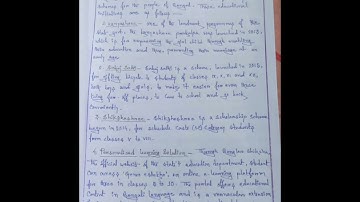 schemes for the people of Bengal. These educational
initiatives are as follows :-
1. Kanyashree :- one of the landmark programmes of this
state govt. the kanyashree prakalpa was launched in 2013,
which is for empowering the girl child through enabling
their education and thus, preventing their marriage at an
early age.
2. Sabuj Sathi :- Sabuj Sathi is a scheme, launched in 2015,
for offering bicycle to students of classes IX, X, XI and XII,
both boys and girls, to make it easier for even those
living far off places, to come to school and go back,
conveniently.
3. Shikshashree :- Shikshashree is a scholarship scheme
begun in 2014, for schedule caste (SC) category students
from classes V to VIII.
4. Personalised Learning Solution :- Through Banglar Shiksha,
the official website of the state's education department, student
can access online a learning platform
for those in classes 8 to 10. The portal offers educational
content in Bengali language and is a extension